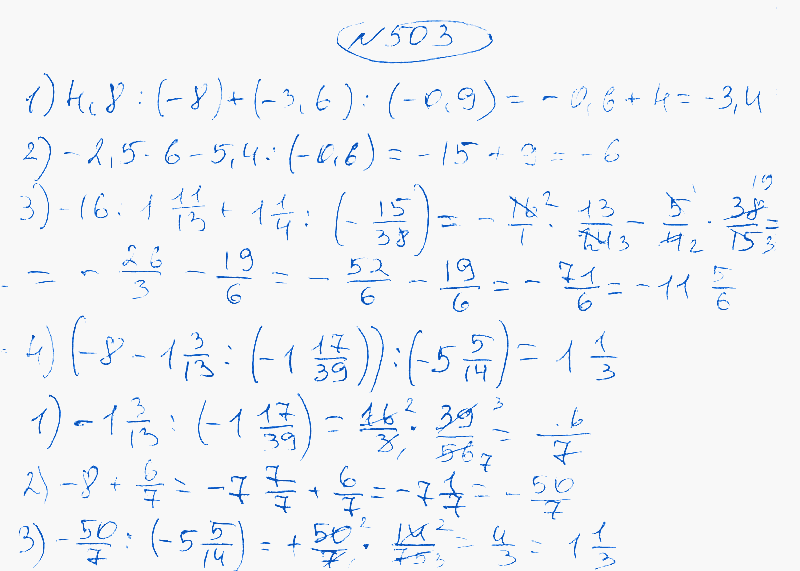 №503
1) 4,8 : (-8) + (-3,6) : (-0,9) = -0,6 + 4 = -3,4
2) -2,5 · 6 - 5,4 : (-0,6) = -15 + 9 = -6
3) -16 : 1 11/13 + 1 1/4 : (- 15/38) = - 16²/1 · 13/24₃ - 5¹/4₂ · 38¹⁹/15₃ =
= - 26/3 - 19/6 = - 52/6 - 19/6 = - 71/6 = -11 5/6
4) (-8 - 1 3/13 : (-1 17/39)) : (-5 5/14) = 1 1/3
1) -1 3/13 : (-1 17/39) = 16²/3₁ · 39³/56₇ = 6/7
2) -8 + 6/7 = -7 7/7 + 6/7 = -7 1/7 = - 50/7
3) - 50/7 : (-5 5/14) = + 50²/7 · 14²/75₃ = 4/3 = 1 1/3